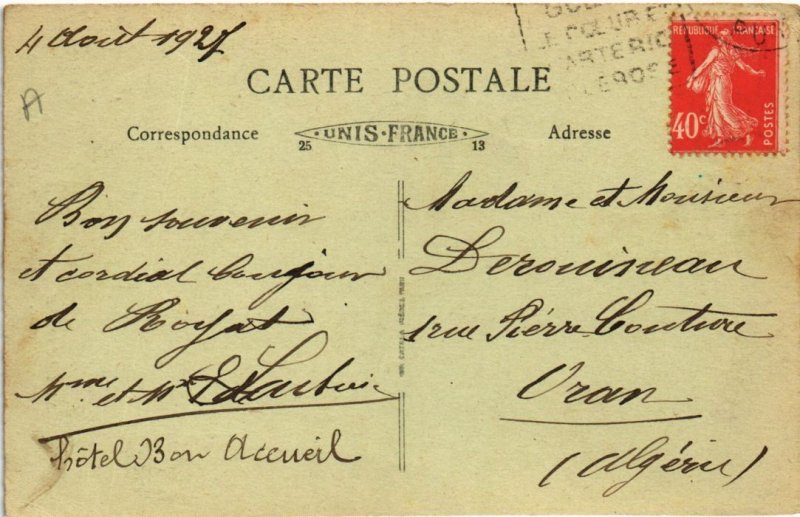 4 Août 1927
LE COEUR ET
ARTERIO
CARTE POSTALE
RÉPUBLIQUE FRANÇAISE
40c
POSTES
Correspondance
UNIS-FRANCE
25 13
Adresse
Bon souvenir
et cordial bonjour
de Royat
Mme et Mr
hôtel Bon Accueil
Madame et Monsieur
Derouineau
1 rue Pierre Couture
Oran
(Algérie)